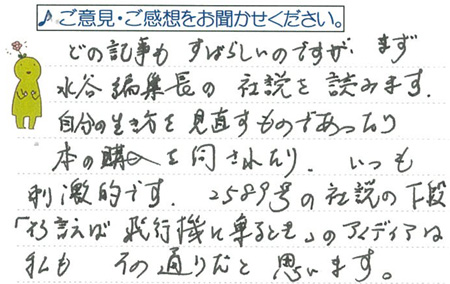 ♪ご意見・ご感想をお聞かせください。
どの記事も すばらしいのですが、まず
水谷編集長の 社説を 読みます.
自分の生き方を 見直すものであったり
本の購入を 促されたり. いつも
刺激的です. 2589号の社説の下段
飛行機に乗るとき」のアイディアは
私も その通りだと 思います。